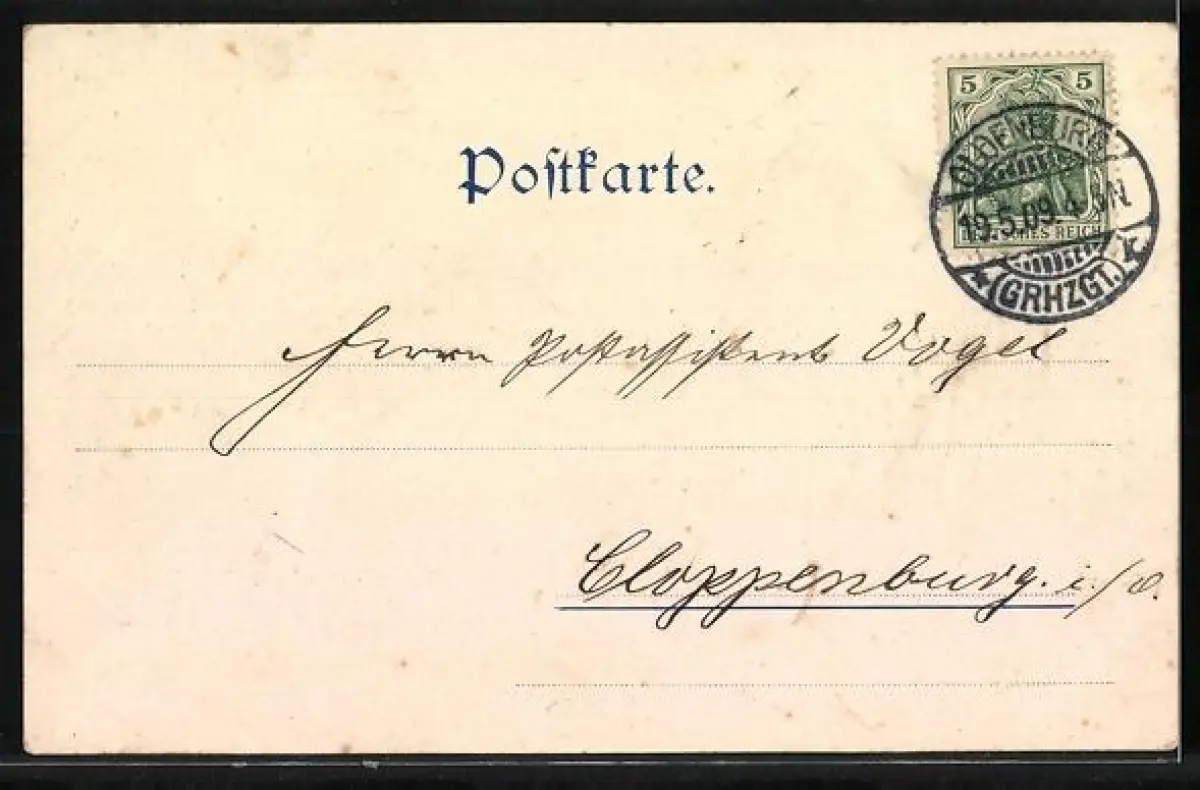 5 5
DEUTSCHES REICH
OLDENBURG
19.5.09. 4-5N.
* (GRHZGT.) K
Postkarte.
Herrn Postassistent Vogel
Cloppenburg. i./O.